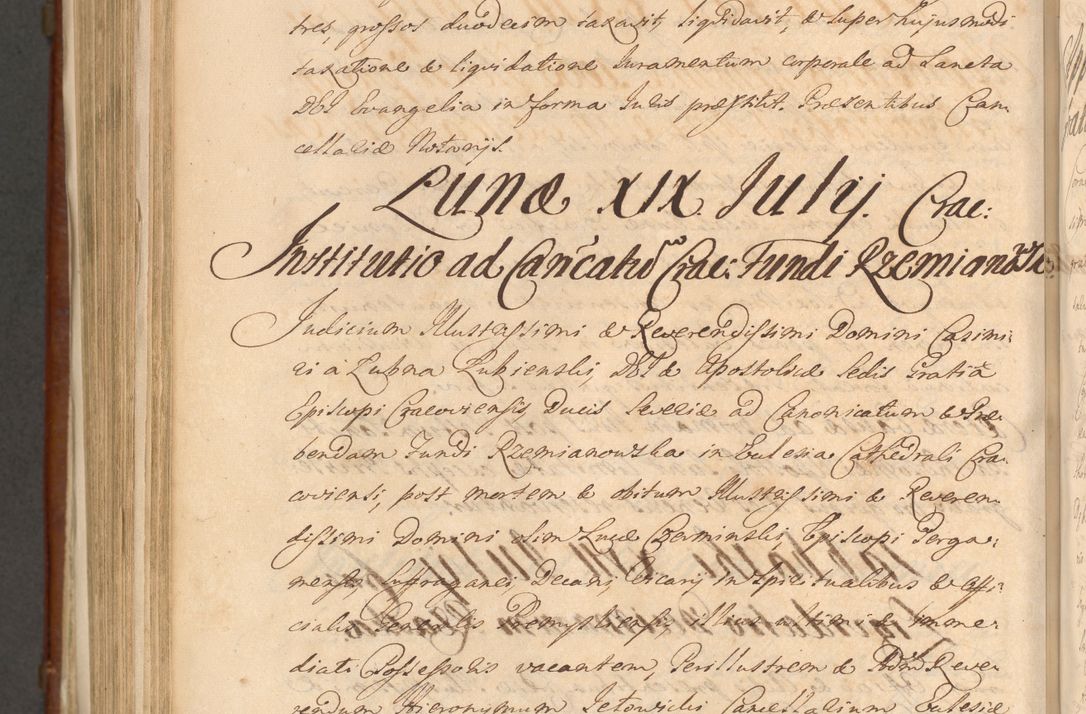 tres, grossos duodecim taxavit, liquidavit, & super hujusmodi
taxatione & liquidatione Juramentum corporale ad Sancta
DEI Evangelia in forma Juris præstitit. Præsentibus Can-
cellariæ Notarijs.
Lunæ XIX Julij. Crac:
Institutio ad Cancatũ Crac: Fundi Rzemianowska
Judicium Illustrissimi & Reverendissimi Domini Casimi-
ri à Łubna Łubienski, DEI & Apostolicæ Sedis Gratiâ
Episcopi Cracoviensis, Ducis Severiæ ad Canonicatum & Præ-
bendam Fundi Rzemianowska in Ecclesia Cathedrali Cra-
coviensi, post mortem & obitum Illustrissimi & Reveren-
dissimi Domini olim Lucæ Czerminski Episcopi Perga-
mensis Suffraganei, Decani, Vicarij in Spiritualibus & Offi-
cialis Generalis Premysliensis illius ultimi & imme-
diati Possessoris vacantem, Perillustrem & Adm Reve-
rendum Hieronymum Jetowicki Cancellarium Ecclesiæ